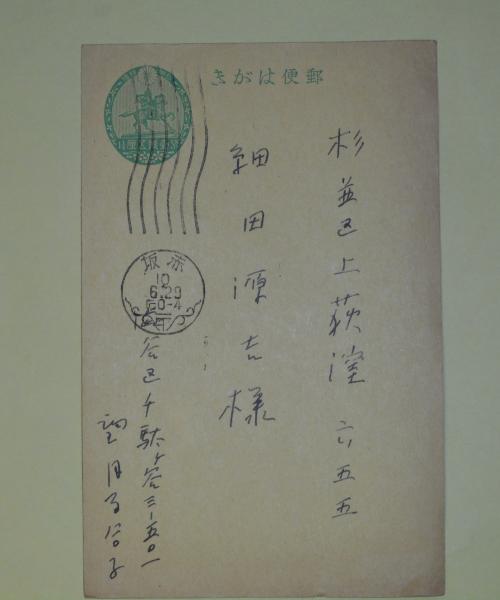 郵便はがき
杉並区上荻窪六五五
細田源吉様
赤坂
10
6.29
后0-4
谷区千駄ヶ谷三ー五〇一
望月百合子